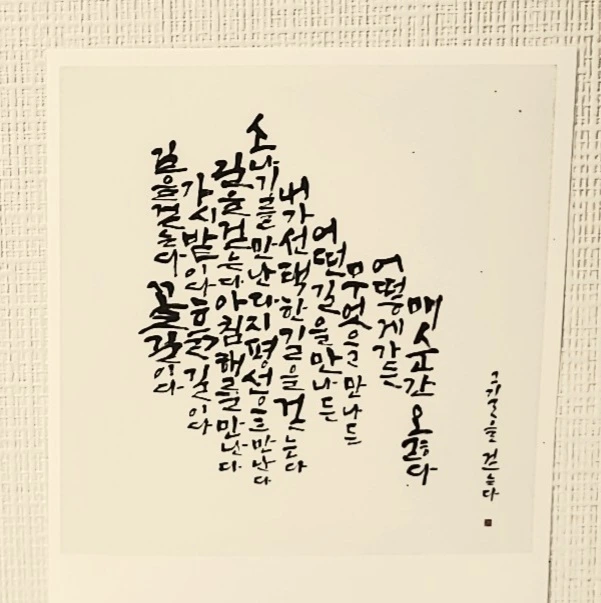 길을걷는다 꽃길이다
가시밭이다 흙길이다
길을걷는다 아침해를만난다
소나기를만난다 지평선을만난다
내가선택한길을걷는다
어떤길을만나든
무엇을만나든
어떻게가든
매순간 옳다
그 길을 걷는다